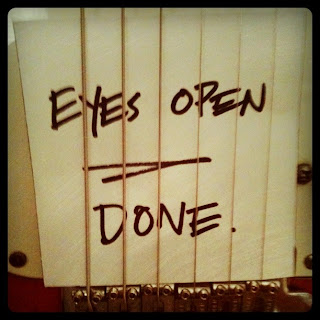 EYES OPEN
DONE.